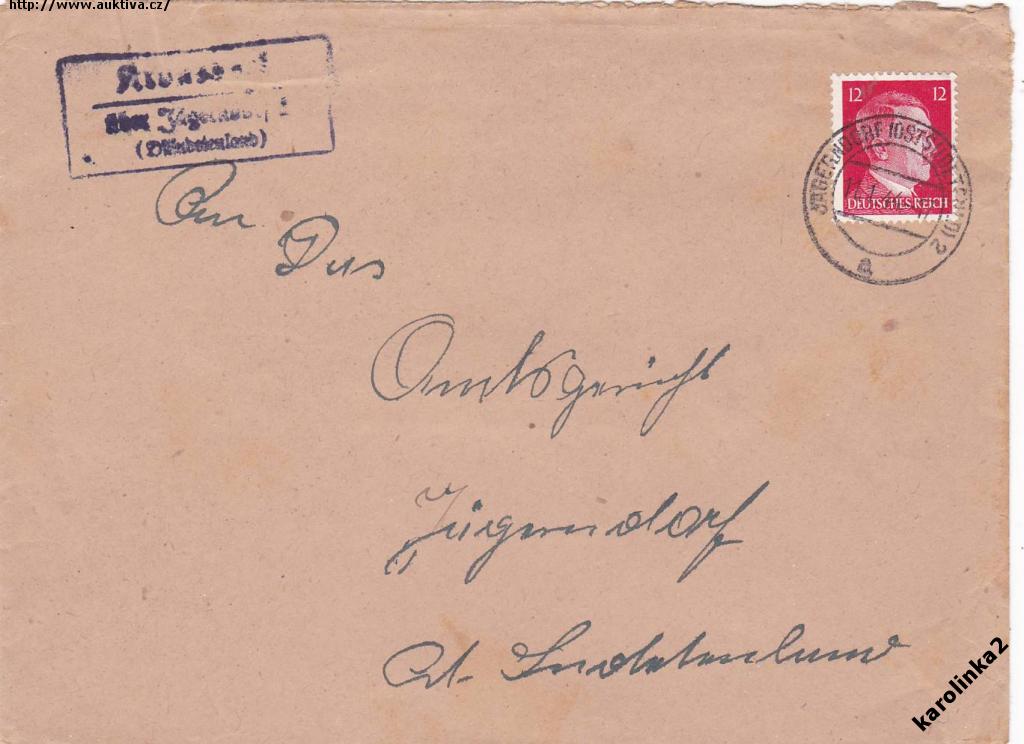 http://www.auktiva.cz/
über Jägerndorf 2
(Ostsudetenland)
12 12
DEUTSCHES REICH
JÄGERNDORF (OSTSUDETENLD) 2
a
An
Das
Amtsgericht
Jägerndorf
Ost. Sudetenland
karolinka2